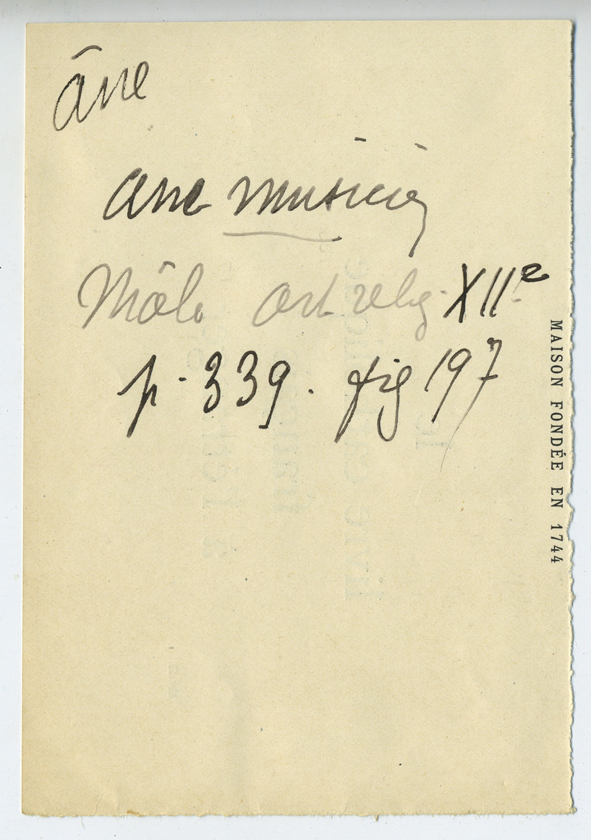 âne
ane musicien
Mâle art relig. XIIe
p. 339. fig 197
MAISON FONDÉE EN 1744